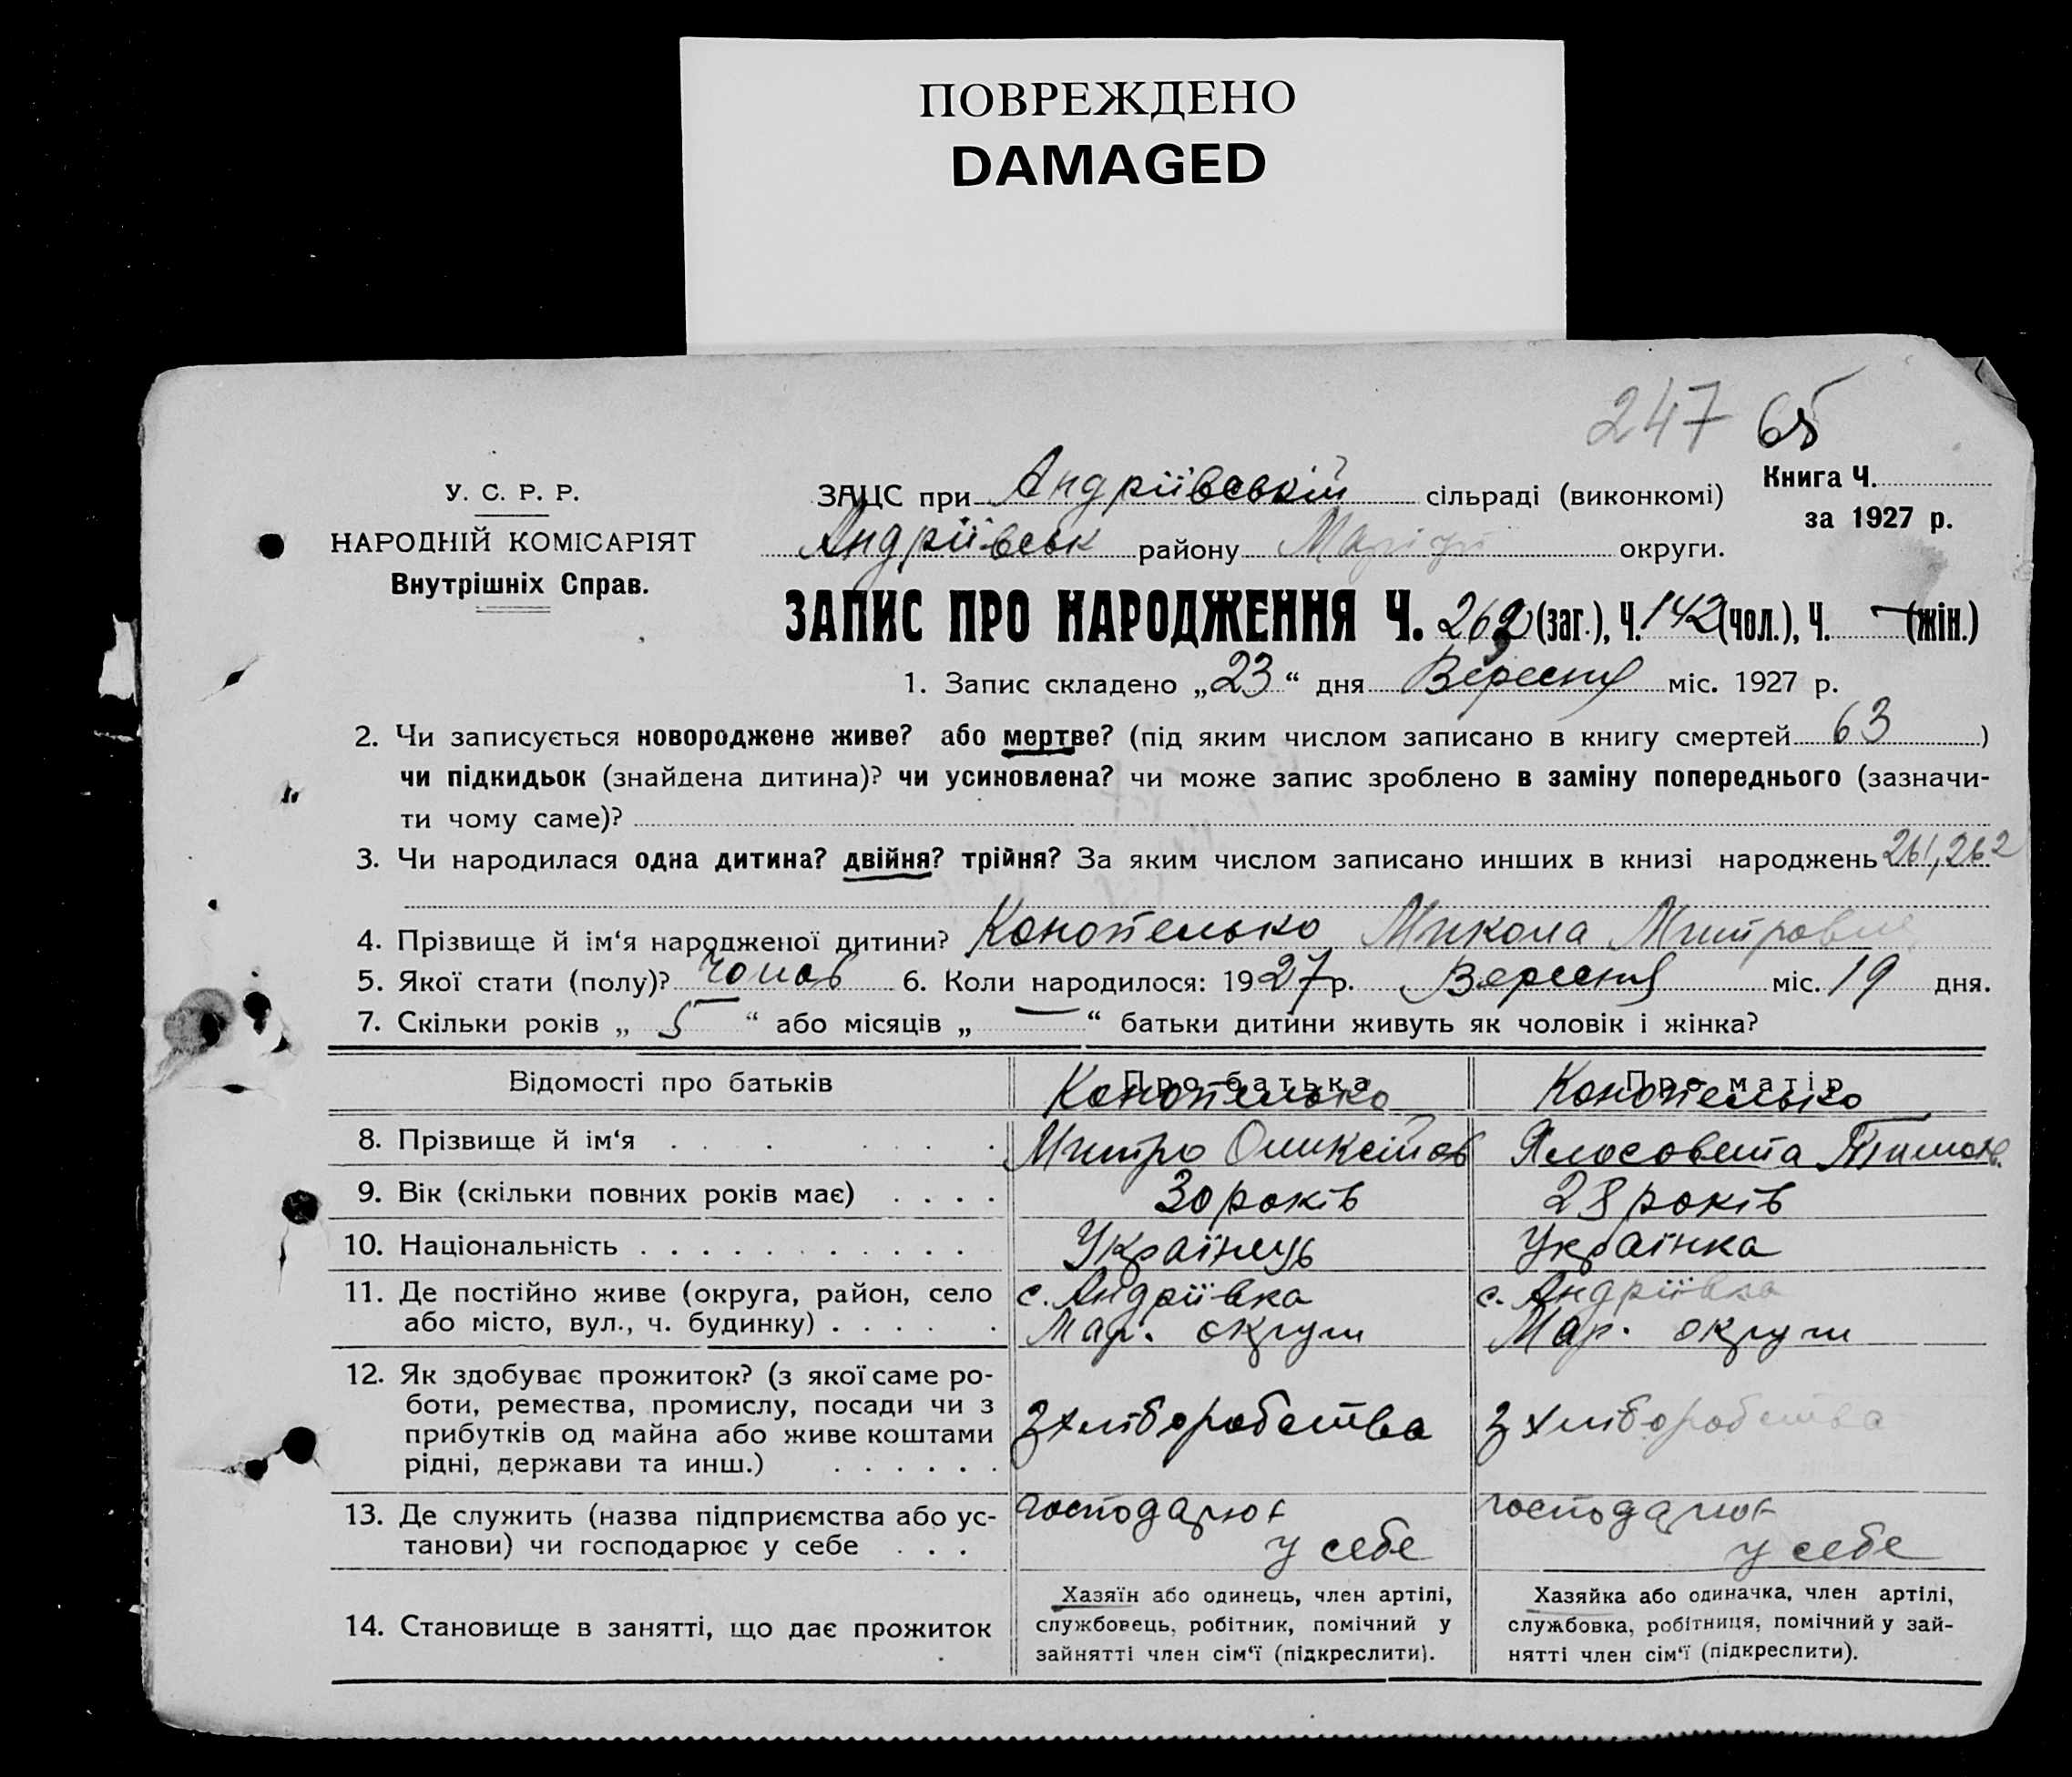 ПОВРЕЖДЕНО
DAMAGED
247 65
У. С. Р. Р.
НАРОДНІЙ КОМІСАРІЯТ
Внутрішніх Справ.
ЗАЦС при Андріївській сільраді (виконкомі)
Андріївськ району Маріуп округи.
Книга Ч.
за 1927 р.
ЗАПИС ПРО НАРОДЖЕННЯ Ч. (заг.), Ч. 142 (чол.), Ч. — (жін.)
1. Запис складено „23“ дня Вересня міс. 1927 р.
2. Чи записується новороджене живе? або мертве? (під яким числом записано в книгу смертей 63)
чи підкидьок (знайдена дитина)? чи усиновлена? чи може запис зроблено в заміну попереднього (зазначи-
ти чому саме)?
3. Чи народилася одна дитина? двійня? трійня? За яким числом записано инших в книзі народжень 261, 262
4. Прізвище й ім‘я народженої дитини? Конопелько Микола Митрович
5. Якої стати (полу)? чолов 6. Коли народилося: 1927 р. Вересня міс. 19 дня.
7. Скільки років „ 5 “ або місяців „ — “ батьки дитини живуть як чоловік і жінка?
Відомості про батьків Про батька Про матір
Конопелько Конопелько
8. Прізвище й ім‘я . . . . . . . Митро Ялосовета
9. Вік (скільки повних років має) . . . . 30 років 28 років
10. Національність . . . . . . . . . . . Українець Українка
11. Де постійно живе (округа, район, село с. Андріївка с. Андріївка
або місто, вул., ч. будинку) . . . . . Мар. округи Мар. округи
12. Як здобуває прожиток? (з якої саме ро-
боти, ремества, промислу, посади чи з з хліборобства з хліборобства
прибутків од майна або живе коштами
рідні, держави та инш.) . . . . . .
13. Де служить (назва підприємства або ус- господарює господарює
танови) чи господарює у себе . . . у себе у себе
14. Становище в занятті, що дає прожиток
Хазяїн або одинець, член артілі,
службовець, робітник, помічний у
зайнятті член сім‘ї (підкреслити).
Хазяйка або одиначка, член артілі,
службовка, робітниця, помічний у зай-
нятті член сім‘ї (підкреслити).